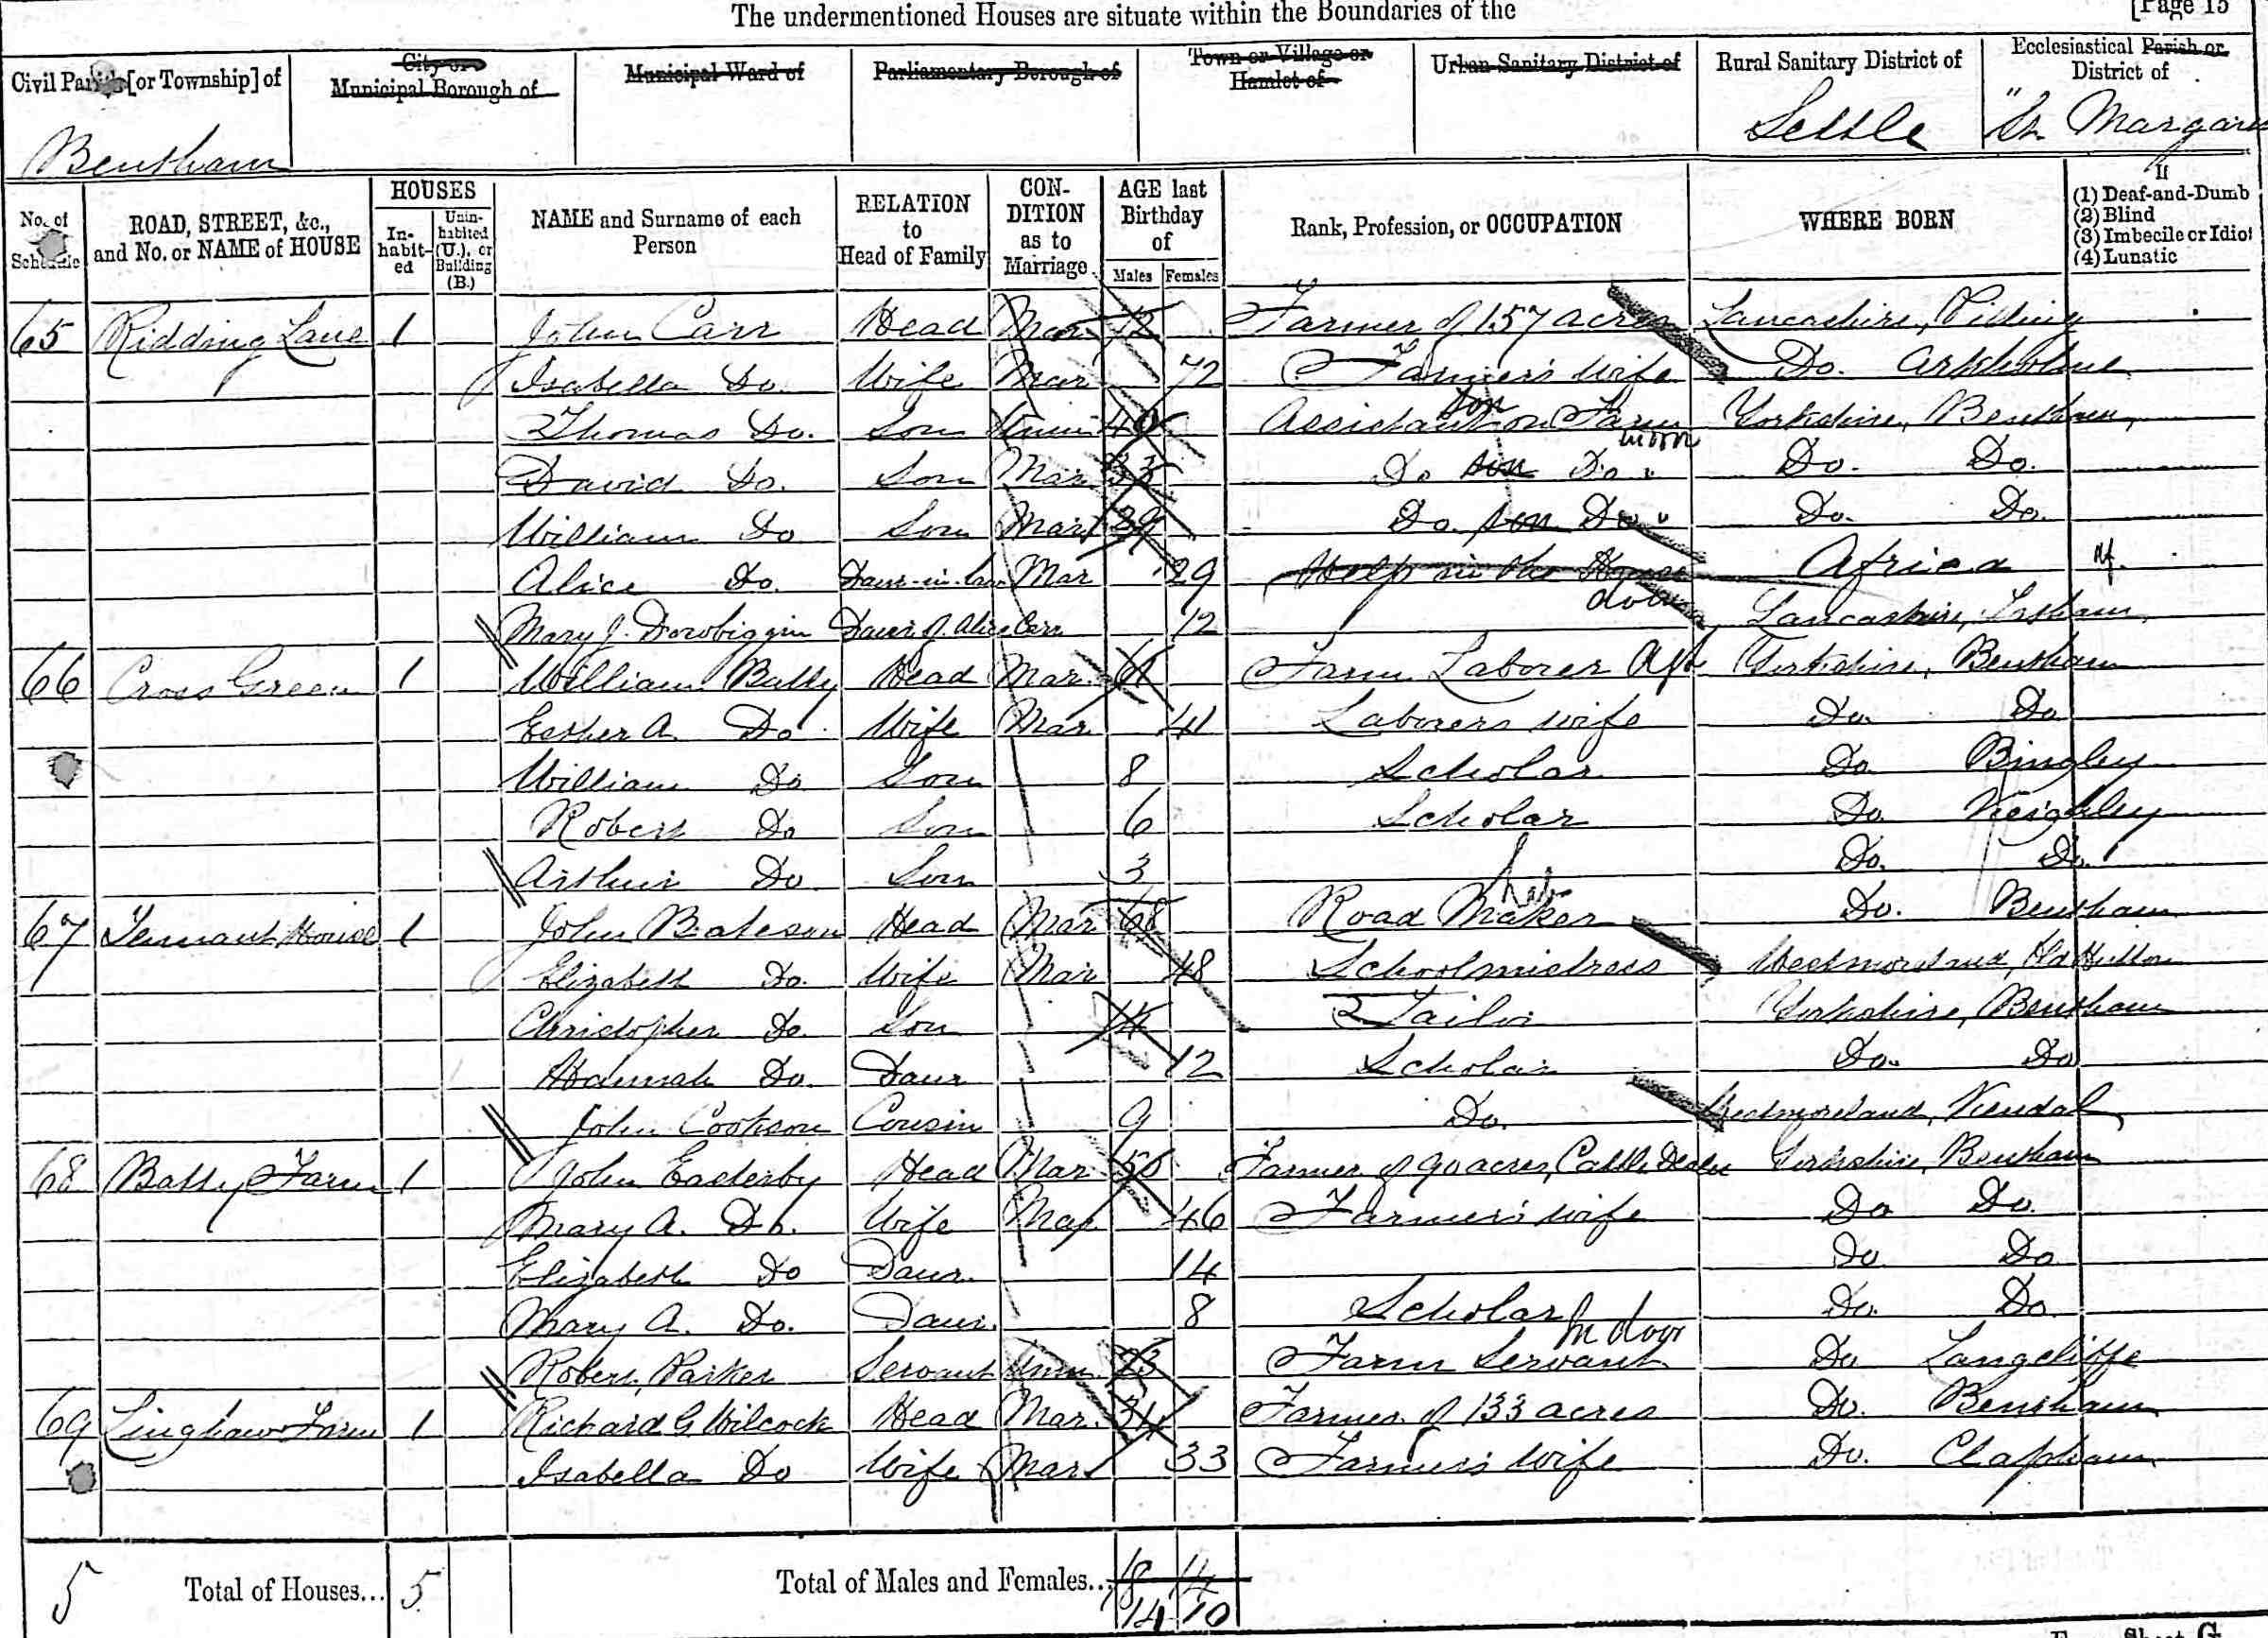 The undermentioned Houses are situate within the Boundaries of the [Page 15
Civil Parish [or Township] of
City or Municipal Borough of
Municipal Ward of
Parliamentary Borough of
Town or Village or Hamlet of
Urban Sanitary District of
Rural Sanitary District of
Ecclesiastical Parish or District of
Bentham Settle "St Margaret
No. of Schedule
ROAD, STREET, &c., and No. or NAME of HOUSE
HOUSES
Inhabited
Uninhabited (U.), or Building (B.)
NAME and Surname of each Person
RELATION to Head of Family
CONDITION as to Marriage
AGE last Birthday of
Males Females
Rank, Profession, or OCCUPATION
WHERE BORN
If
(1) Deaf-and-Dumb
(2) Blind
(3) Imbecile or Idiot
(4) Lunatic
65 Ridding Lane 1 John Carr Head Mar Farmer of 157 acres Lancashire, Pilling
Isabella Do. Wife Mar 72 Farmer's wife Do. Arkholme
Thomas Do. Son Unm 40 Assistant son on Farm Yorkshire, Bentham
David Do. Son Mar 33 Do son Do Do. Do.
William Do Son Mar 29 Do son Do Do. Do.
Alice Do. Daur-in-law Mar 29 Help in the House Africa
Mary J. Dowbiggin Daur of Alice Carr 12 Lancashire, Tatham
66 Cross Green 1 William Batty Head Mar 41 Farm Laborer Yorkshire, Bentham
Esther A. Do Wife Mar 41 Laborers wife Do. Do
William Do Son 8 Scholar Do Bingley
Robert Do Son 6 Scholar Do Keighley
Arthur Do Son 3 Do. Do.
67 Tennant House 1 John Bateson Head Mar 68 Road Maker Do. Bentham
Elizabeth Do. Wife Mar 48 Schoolmistress Westmoreland, Old Hutton
Christopher Do. Son 14 Tailor Yorkshire, Bentham
Hannah Do. Daur 12 Scholar Do. Do
John Cookson Cousin 9 Do. Westmoreland, Kendal
68 Batty Farm 1 John Easterby Head Mar 50 Farmer of 90 acres, Cattle Dealer Yorkshire, Bentham
Mary A. Do. Wife Mar 46 Farmer's wife Do Do.
Elizabeth Do Daur. 14 Do Do
Mary A. Do. Daur. 8 Scholar Do. Do
Robert Parker Servant Unm 23 Farm Servant In door Do Langcliffe
69 Linghaw Farm 1 Richard G Wilcock Head Mar. 34 Farmer of 133 acres Do. Bentham
Isabella Do Wife Mar 33 Farmers Wife Do. Clapham
5 Total of Houses... 5 Total of Males and Females... 18 14
14 10